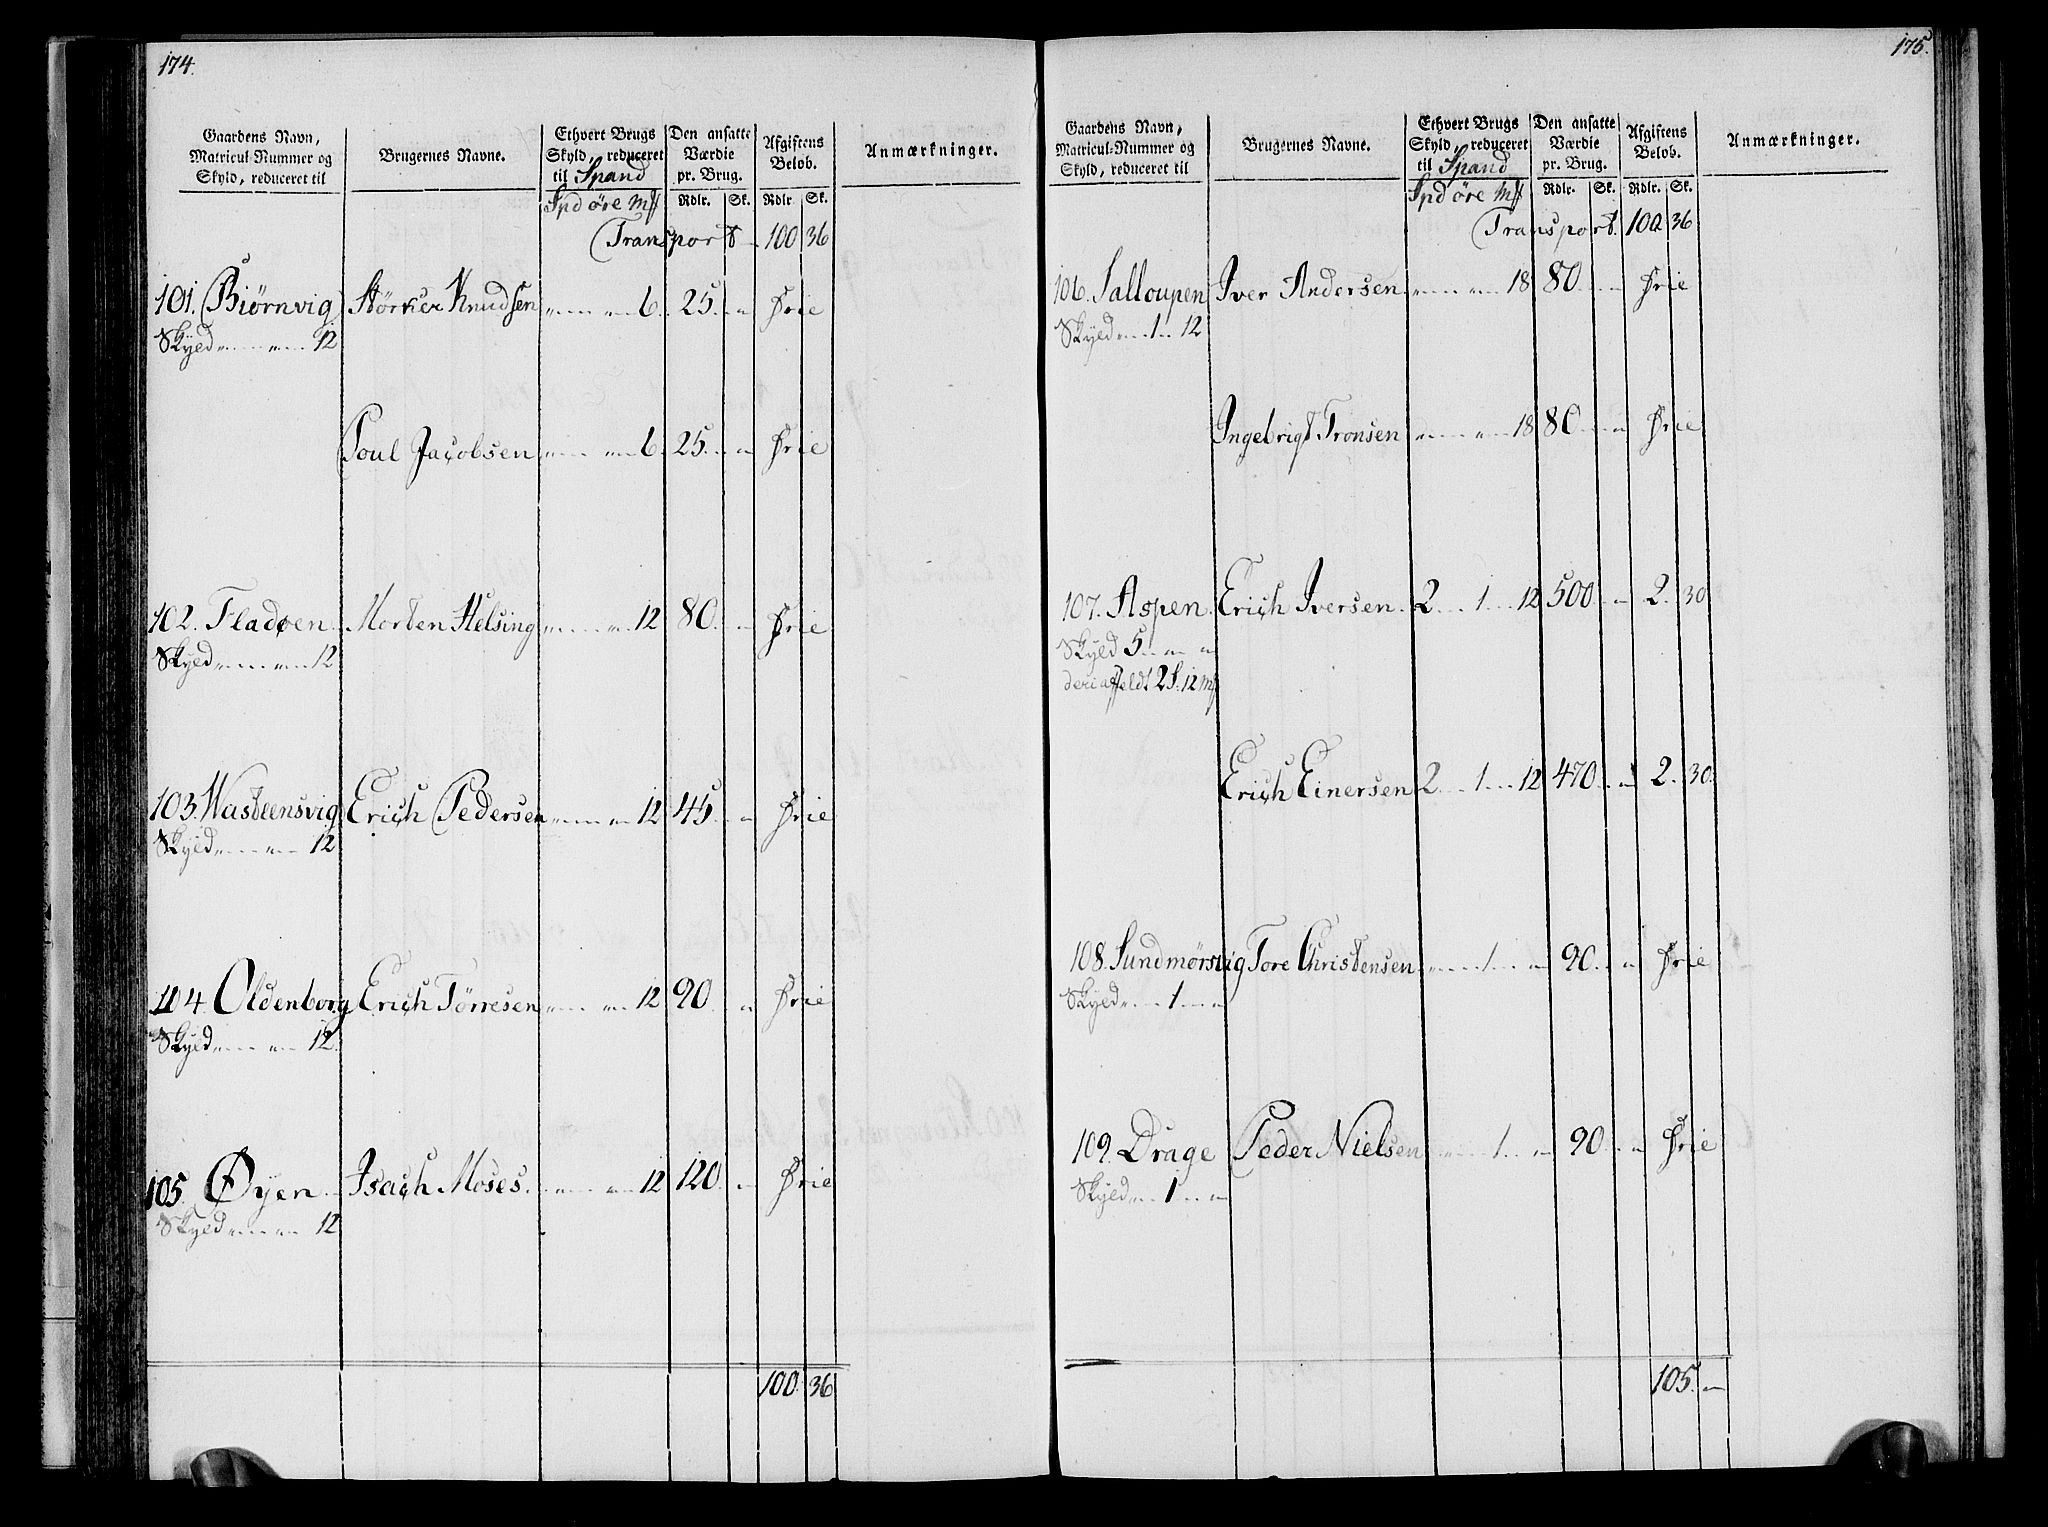 174.
Gaardens Navn, Matricul-Nummer og Skyld, reduceret til
Brugernes Navne.
Ethvert Brugs Skyld, reduceret til Spand
Den ansatte Værdie pr. Brug.
Afgiftens Beløb.
Anmærkninger.
Spd øre Mß Rdlr. Sk. Rdlr. Sk.
Transport 100 36
101. Biørnvig Størker Knudsen " " 6. 25 " Frie
Skyld " " 12
Poul Jacobsen " " 6. 25 " Frie
102. Fladøen Morten Helsing " " 12 80 " Frie
Skyld " " 12
103. Wasteensvig Erich Pedersen " " 12 45 " Frie
Skyld " " 12
104. Oldenborg Erich Tørresen " " 12 90 " Frie
Skyld " " 12
105. Øyen Isach Moses " " 12 120 " Frie
Skyld " " 12
100 36
175.
Gaardens Navn, Matricul-Nummer og Skyld, reduceret til
Brugernes Navne.
Ethvert Brugs Skyld, reduceret til Spand
Den ansatte Værdie pr. Brug.
Afgiftens Beløb.
Anmærkninger.
Spd øre Mß Rdlr. Sk. Rdlr. Sk.
Transport 100 36
106. Salloupen Iver Andersen " " 18 80 " Frie
Skyld " 1 12
Ingebrigt Tronsen " " 18 80 " Frie
107. Aspen Erich Iversen 2 1 12 500 " 2 30
Skyld 5 " "
deri affeldt 2 S. 12 Mß
Erich Einersen 2 1 12 470 " 2 30
108. Sundmørsvig Tore Christensen " 1 " 90 " Frie
Skyld " 1 "
109. Drage Peder Nielsen " 1 " 90 " Frie
Skyld " 1 "
105 "